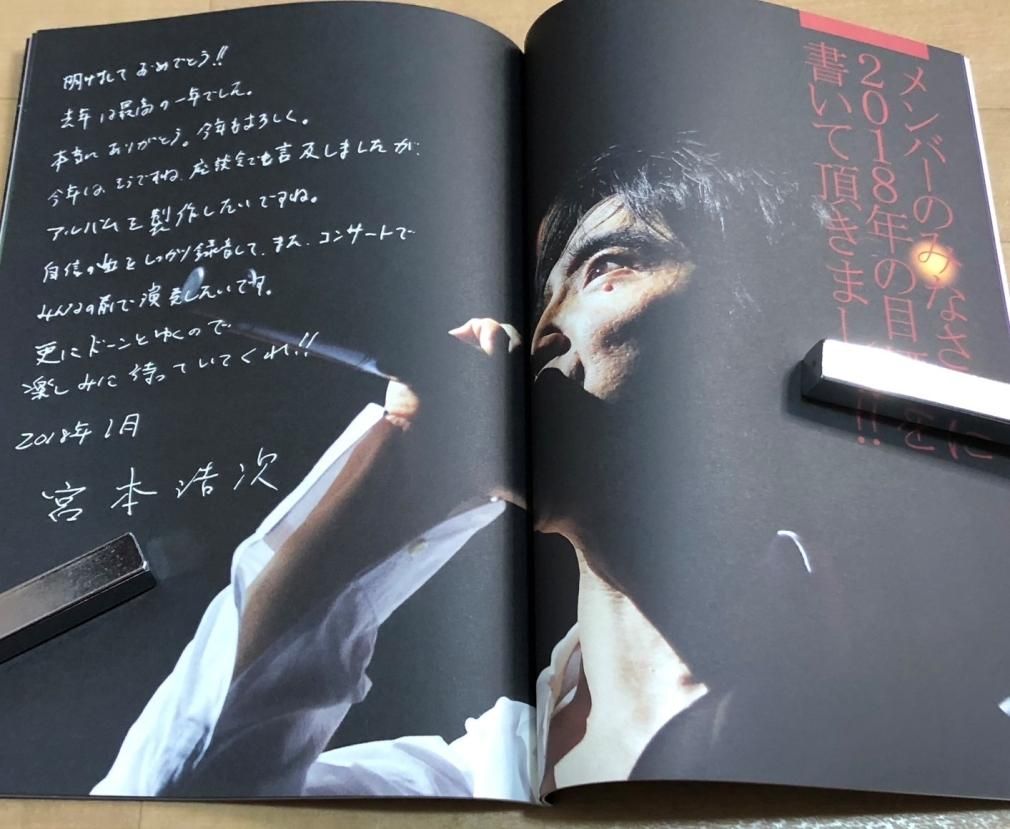 明けまして おめでとう!!
去年は最高の一年でした。
本当に ありがとう。今年もよろしく。
今年は、そうですね、座談会でも言及しましたが、
アルバムを製作したいですね。
自信の曲をしっかり録音して、また、コンサートで
みんなの前で演奏したいです。
更にドーンとゆくので
楽しみに待っていてくれ!!
2018年1月
宮本浩次
メンバーのみなさ に
2018年の目 を
書いて頂きまし !!